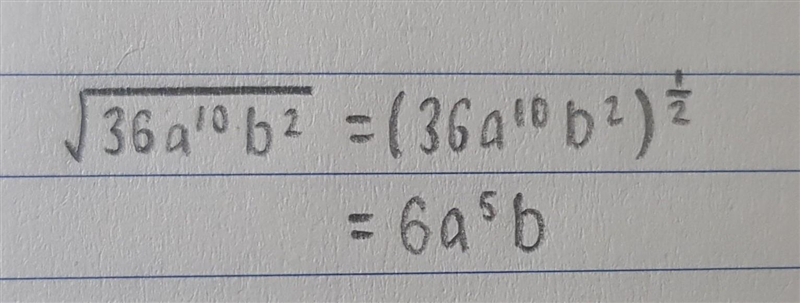 √36a¹⁰b² = (36a¹⁰b²)^½
= 6a⁵b